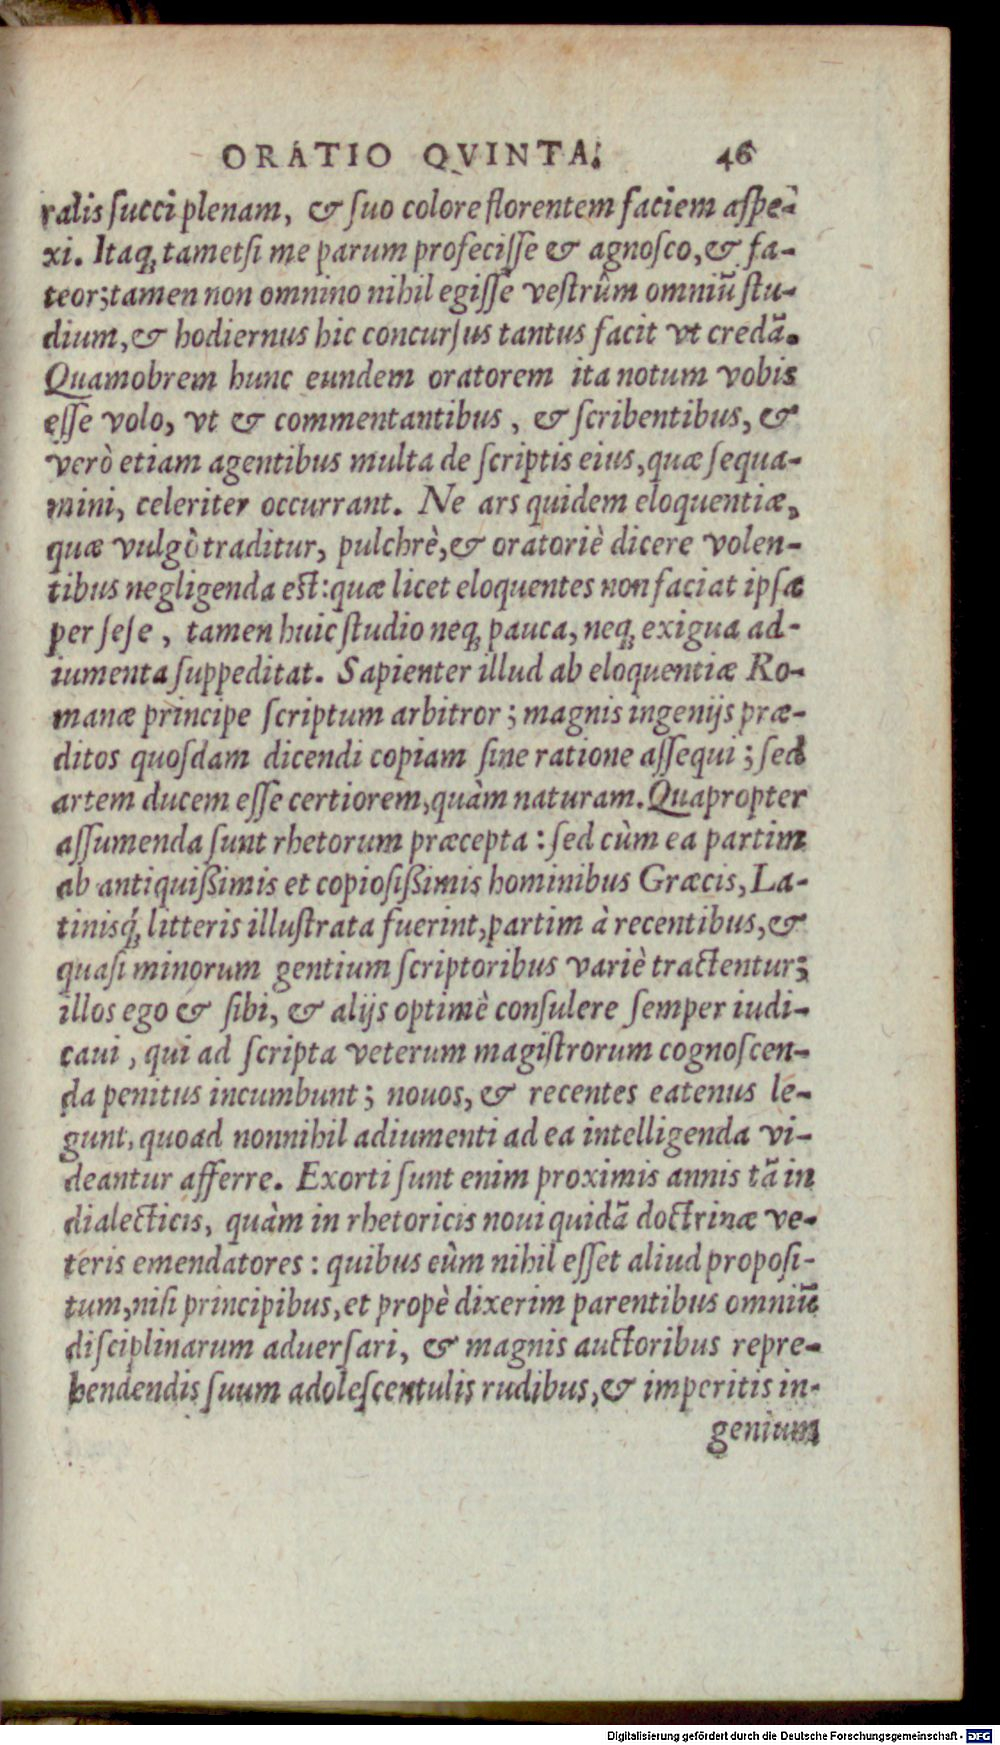 ORATIO QVINTA. 46
ralis ſucci plenam, & ſuo colore florentem faciem aſpe-
xi. Itaq; tametſi me parum profeciſſe & agnoſco, & fa-
teor; tamen non omnino nihil egiſſe veſtrûm omniũ ſtu-
dium, & hodiernus hic concurſus tantus facit vt credã.
Quamobrem hunc eundem oratorem ita notum vobis
eſſe volo, vt & commentantibus, & ſcribentibus, &
verò etiam agentibus multa de ſcriptis eius, quæ ſequa-
mini, celeriter occurrant. Ne ars quidem eloquentiæ,
quæ vulgò traditur, pulchrè, & oratoriè dicere volen-
tibus negligenda eſt: quæ licet eloquentes non faciat ipſa
per ſeſe, tamen huic ſtudio neq; pauca, neq; exigua ad-
iumenta ſuppeditat. Sapienter illud ab eloquentiæ Ro-
manæ principe ſcriptum arbitror; magnis ingenijs præ-
ditos quoſdam dicendi copiam ſine ratione aſſequi; ſed
artem ducem eſſe certiorem, quàm naturam. Quapropter
aſſumenda ſunt rhetorum præcepta: ſed cùm ea partim
ab antiquißimis et copioſißimis hominibus Græcis, La-
tinisq́; litteris illuſtrata fuerint, partim à recentibus, &
quaſi minorum gentium ſcriptoribus variè tractentur;
illos ego & ſibi, & alijs optimè conſulere ſemper iudi-
caui, qui ad ſcripta veterum magiſtrorum cognoſcen-
da penitus incumbunt; nouos, & recentes eatenus le-
gunt, quoad nonnihil adiumenti ad ea intelligenda vi-
deantur afferre. Exorti ſunt enim proximis annis tã in
dialecticis, quàm in rhetoricis noui quidã doctrinæ ve-
teris emendatores: quibus cùm nihil eſſet aliud propoſi-
tum, niſi principibus, et propè dixerim parentibus omniũ
diſciplinarum aduerſari, & magnis auctoribus repre-
hendendis ſuum adoleſcentulis rudibus, & imperitis in-
genium
Digitalisierung gefördert durch die Deutsche Forschungsgemeinschaft - DFG